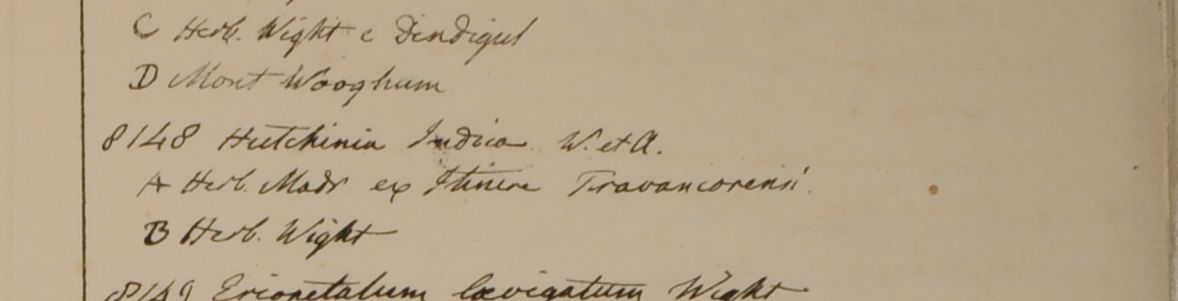 C Herb. Wight e Dindigul
D Mont Wooghum
8148 Hutchinia Indica W. et A.
A Herb. Madr ex Itinere Travancorensi.
B Herb. Wight
8149 Eriopetalum laevigatum Wight